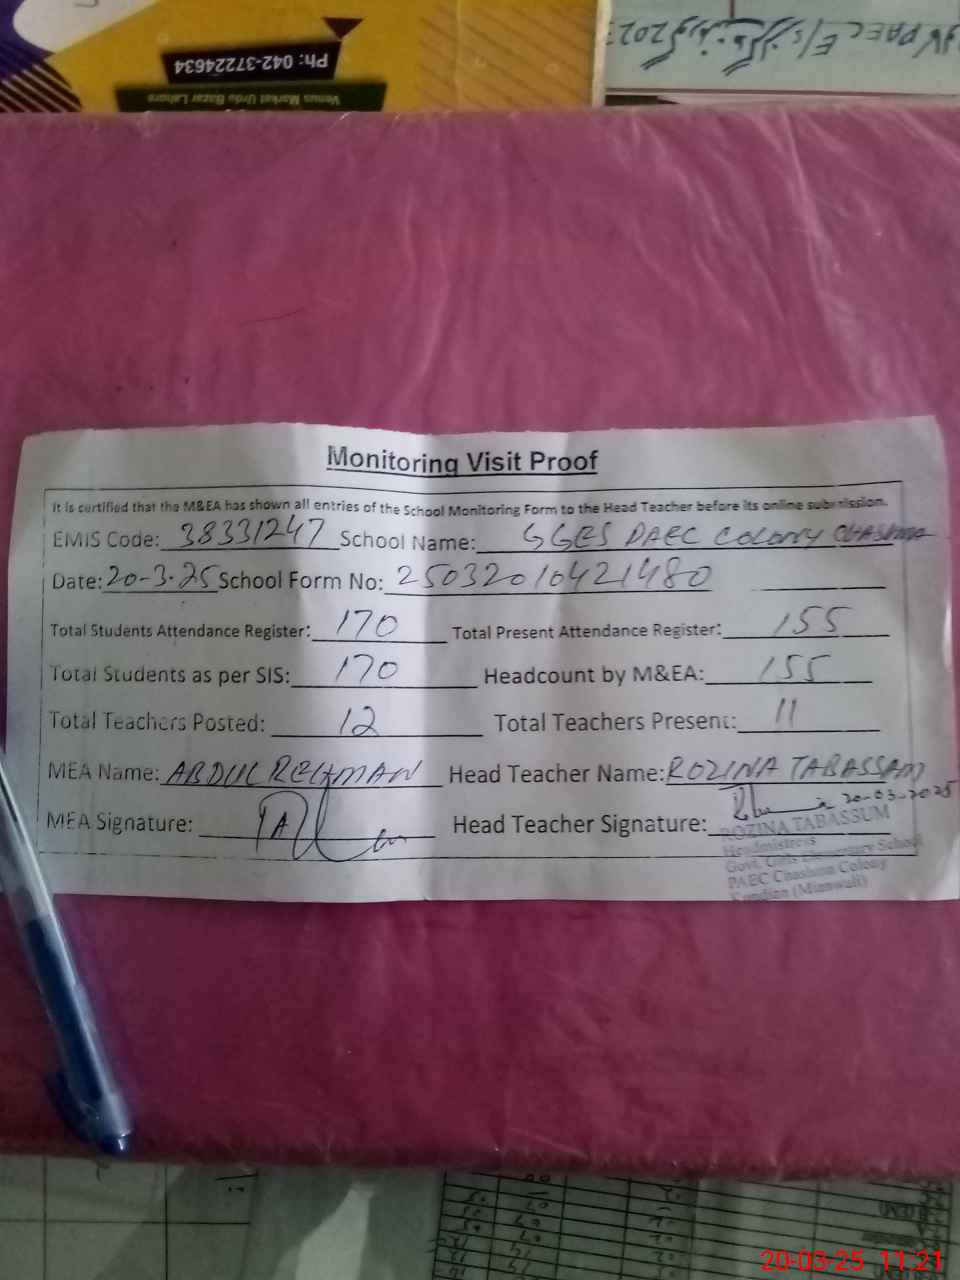 Ph: 042-37224634
Venus Market Urdu Bazar Lahore
PAEC E/S
Monitoring Visit Proof
It is certified that the M&EA has shown all entries of the School Monitoring Form to the Head Teacher before its online submission.
EMIS Code: 38331247 School Name: GGES PAEC COLONY CHASHMA
Date: 20-3-25 School Form No: 25032010421480
Total Students Attendance Register: 170 Total Present Attendance Register: 155
Total Students as per SIS: 170 Headcount by M&EA: 155
Total Teachers Posted: 12 Total Teachers Present: 11
MEA Name: ABDUL REHMAN Head Teacher Name: ROZINA TABASSAM
20-03-2025
MEA Signature: Head Teacher Signature:
ROZINA TABASSUM
Headmistress
Govt. Girls Elementary School
PAEC Chashma Colony
Kundian (Mianwali)
20-03-25 11:21